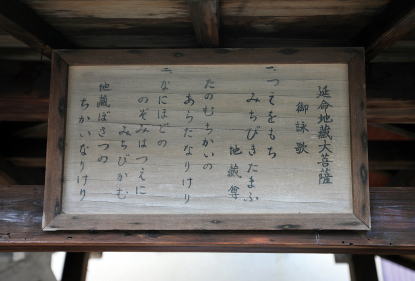 延命地蔵大菩薩
御詠歌
一、つえをもち
みちびきたまふ
地蔵尊
たのむちかいの
あらたなりけり
一、なにほどの
のぞみはつえに
みちびかむ
地蔵ぼさつの
ちかいなりけり